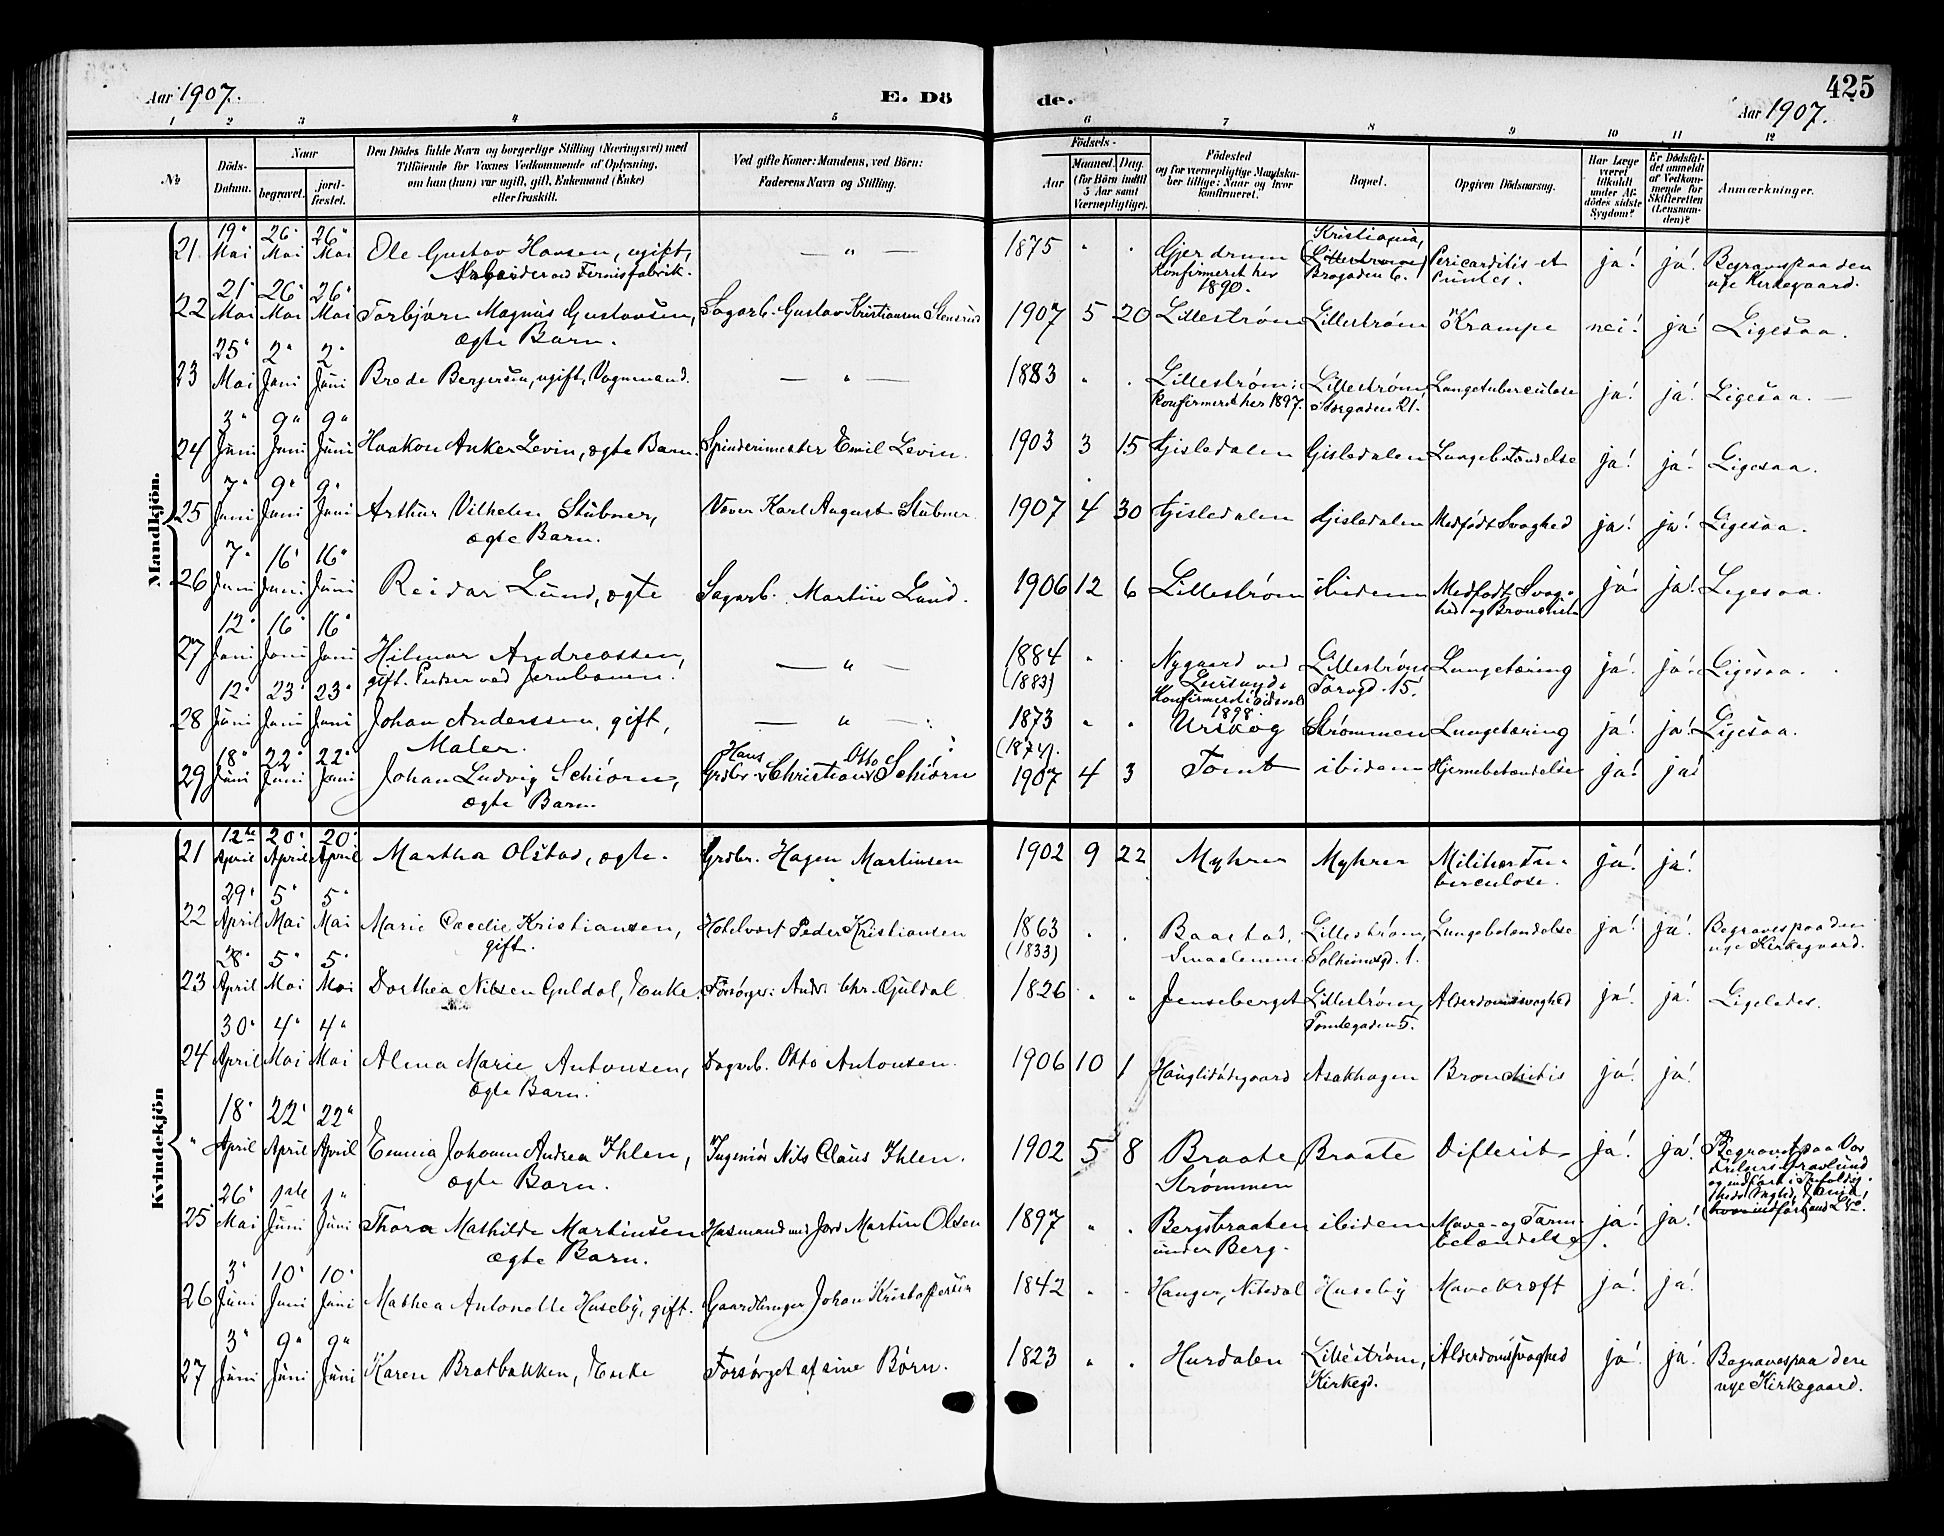 Aar 1907.
E. Dö
de.
425
Aar 1907.
1 2 3 4 5 6 7 8 9 10 11 12
No
Döds-Datum.
Naar
begravet.
jord-fæstet.
Den Dödes fulde Navn og borgerlige Stilling (Næringsvei) med
Tilföiende for Voxnes Vedkommende af Oplysning,
om han (hun) var ugift, gift, Enkemand (Enke)
eller fraskilt.
Ved gifte Koner: Mandens, ved Börn:
Faderens Navn og Stilling.
Födsels-
Aar
Maaned. Dag.
(for Börn indtil 5 Aar samt Værnepligtige).
Födested
og for værnepligtige Mandska-
ber tillige: Naar og hvor
konfirmeret.
Bopæl.
Opgiven Dödsaarsag.
Har Læge været tilkaldt under Afdödes sidste Sygdom?
Er Dödsfaldet anmeldt af Vedkommende for Skifteretten (Lensmanden)?
Anmærkninger.
Mandkjön.
21 19' Mai 26' Mai 26' Mai Ole Gustav Hansen, ugift, Arbeider ved Fernisfabrik. — " — 1875 " " Gjerdrum Konfirmeret her 1890. Kristiania, (Lillestrøm) Brogaden 6. Pericarditis et ja! ja! Begraves paa den nye Kirkegaard.
22 21' Mai 26' Mai 26' Mai Torbjørn Magnus Gustavsen, ægte Barn. Sagarb. Gustav Kristiansen Stensrud 1907 5 20 Lillestrøm Lillestrøm Krampe nei! ja! Ligesaa.
23 25' Mai 2' Juni 2' Juni Brede Bergersen, ugift, Vognmand. — " — 1883 " " Lillestrøm; Konfirmeret her 1897. Lillestrøm, Storgaden 21. Lungetuberculose ja! ja! Ligesaa. —
24 3' Juni 9' Juni 9' Juni Haakon Anker Levin, ægte Barn. Spinderimester Emil Levin. 1903 3 15 Gisledalen Gisledalen Lungebetændelse ja! ja! Ligesaa.
25 7' Juni 9' Juni 9' Juni Arthur Vilhelm Stübner, ægte Barn. Væver Karl August Stübner 1907 4 30 Gisledalen Gisledalen Medfødt Svaghed ja! ja! Ligesaa.
26 7' Juni 16' Juni 16' Juni Reidar Lund, ægte Sagarb. Martin Lund. 1906 12 6 Lillestrøm ibidem Medfødt Svaghed og Bronchit ja! ja! Ligesaa.
27 12' Juni 16' Juni 16' Juni Hilmar Andreassen, gift. Pudser ved Jernbanen. — " — 1884 (1883) " " Nygaard ved Konfirmeret i Eidsvold 1898 Lillestrøm Torvgd. 15. Lungetæring ja! ja! Ligesaa.
28 12' Juni 23' Juni 23' Juni Johan Anderssen, gift, Maler. — " — 1873 (1874). " " Urskog Strømmen Lungetæring ja! ja! Ligesaa.
29 18' Juni 22' Juni 22' Juni Johan Ludvig Schiørn, ægte Barn. Grdbr. Hans Christian Otto Schiørn 1907 4 3 Tomt ibidem Hjernebetændelse ja! ja!
Kvindekjön
21 12te April 20' April 20' April Martha Olstad, ægte. Grdbr. Hagen Martinsen 1902 9 22 Myhrer Myhrer Miliær Tuberculose. ja! ja!
22 29' April 5' Mai 5' Mai Marie Cæcilie Kristiansen, gift. Hotelvært Peder Kristiansen 1863 (1833) " " Baastad, Smaalenene Lillestrøm, Solheimsgd. 1. Lungebetændelse ja! ja! Begraves paa den nye Kirkegaard.
23 28' April 5' Mai 5' Mai Dorthea Nilsen Guldal, Enke. Forsørger: Andr. Chr. Guldal 1826 " " Jenseberget Lillestrøm, Tomtegaden 5. Alderdomssvaghed ja! ja! Ligeledes.
24 30' April 4' Mai 4' Mai Alma Marie Antonsen, ægte Barn. Dagarb. Otto Antonsen. 1906 10 1 Hauglidødegaard Asakhagen Bronchitis ja! ja!
" 18' April 22' April 22' April Emma Johanne Andrea Ihlen, ægte Barn. Ingeniør Nils Claus Ihlen. 1902 5 8 Braate Strømmen Braate Difterit ja! ja! Begravet paa Vor Frelsers Gravlund og indført i Trefoldig-
25 26' Mai 1ste Juni 1' Juni Thora Mathilde Martinsen ægte Barn. Husmand med Jord Martin Olsen 1897 " " Bergsbraaten under Berg. ibidem Mave- og Tarmbetændelse. ja! ja!
26 3' Juni 10' Juni 10' Juni Mathea Antonette Huseby, gift. Gaardbruger Johan Kristoffersen 1842 " " Hauger, Nitedal Huseby Mavekræft ja! ja!
27 3' Juni 9' Juni 9' Juni Karen Bratbakken, Enke Forsørget af sine Børn. 1823 " " Hurdalen Lillestrøm, Kirkegd. Alderdomssvaghed ja! ja! Begraves paa den nye Kirkegaard.